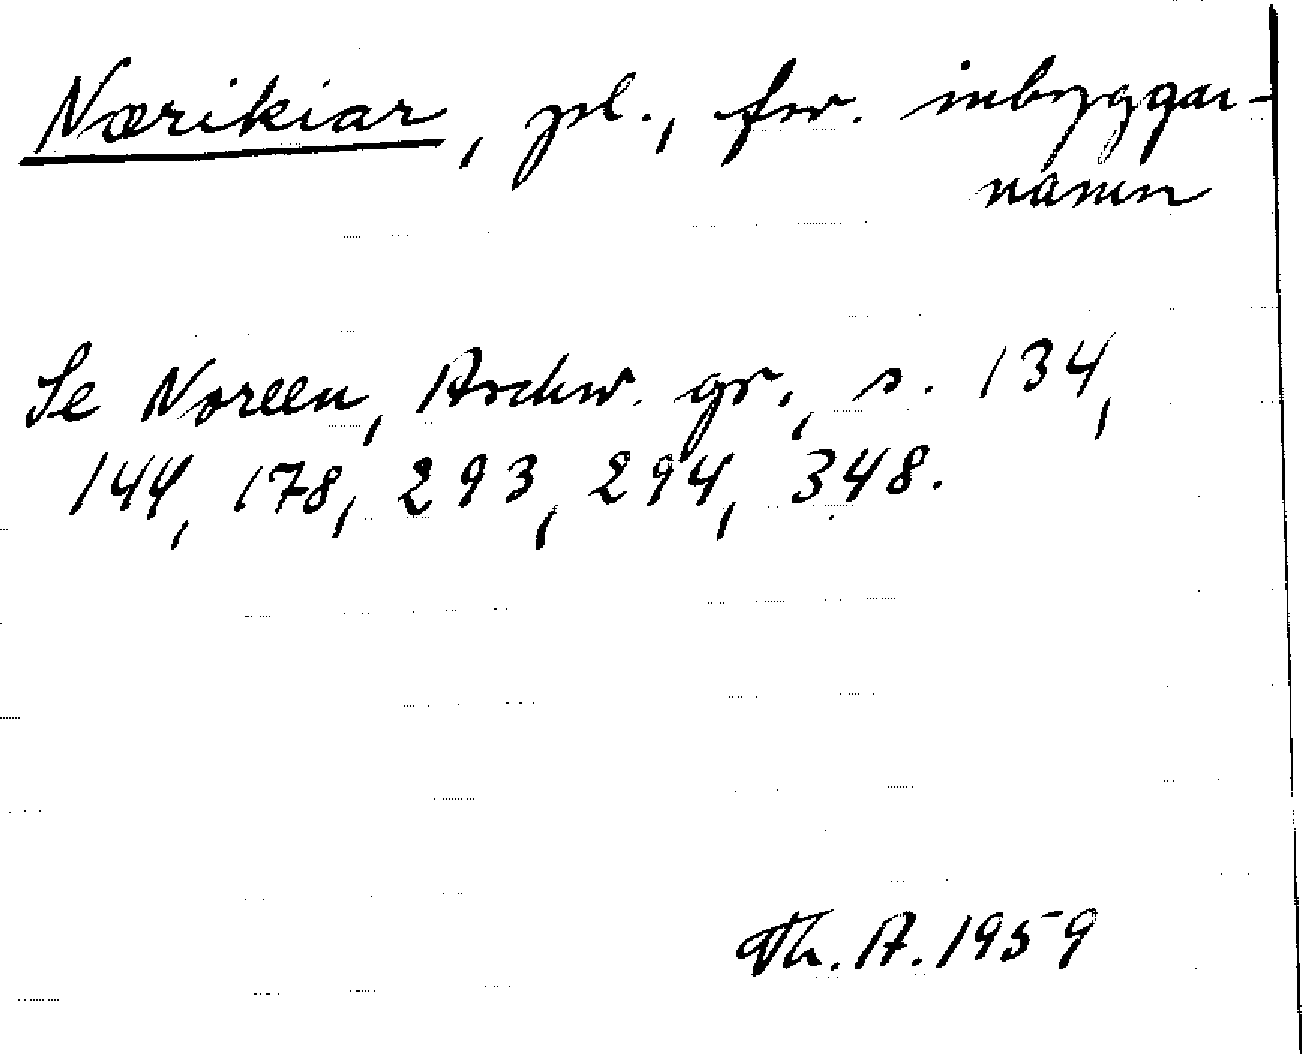 Nærikiar, pl., fsv. inbyggar-
namn
Se Noreen, Aschw. gr., s. 134,
144, 178, 293, 294, 348.
Th. A. 1959